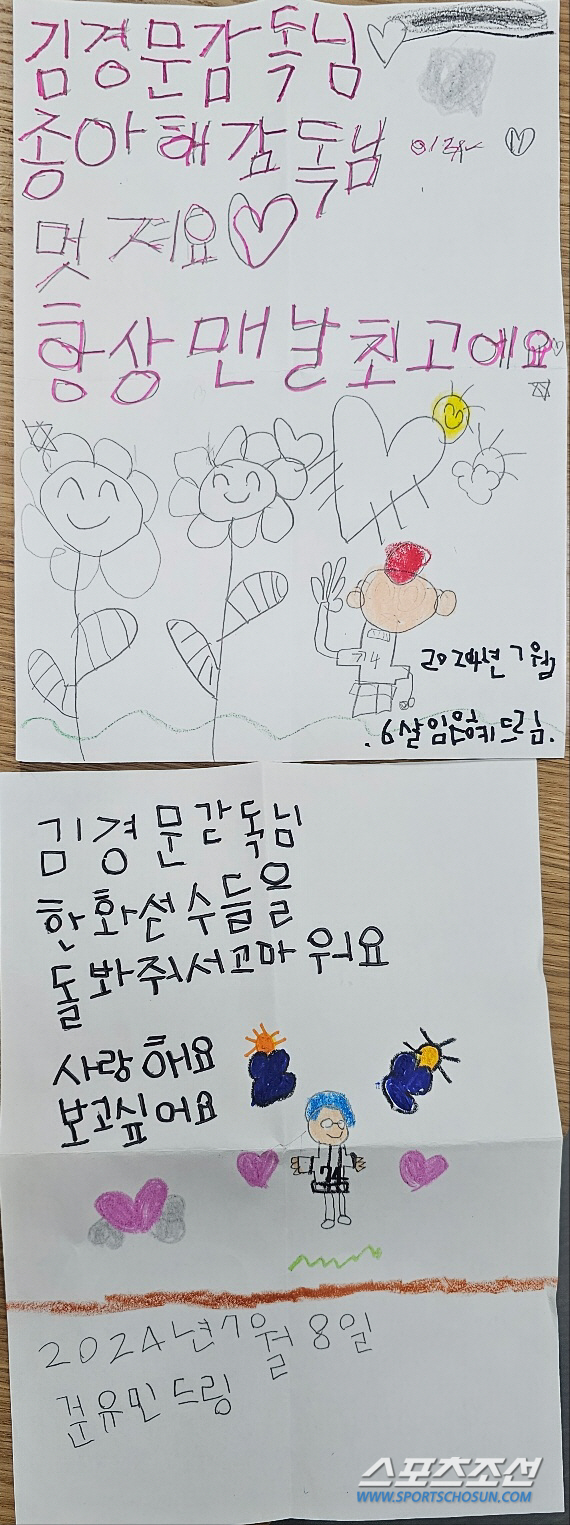 김경문감독님
종아해감독님
멋져요
항상맨날최고에요
74
2024년 7월
6살임 드림.
김경문감독님
한화선수들을
돌봐줘서고마워요
사랑해요
보고싶어요
74
2024년7월8일
유민드림
스포츠조선
WWW.SPORTSCHOSUN.COM